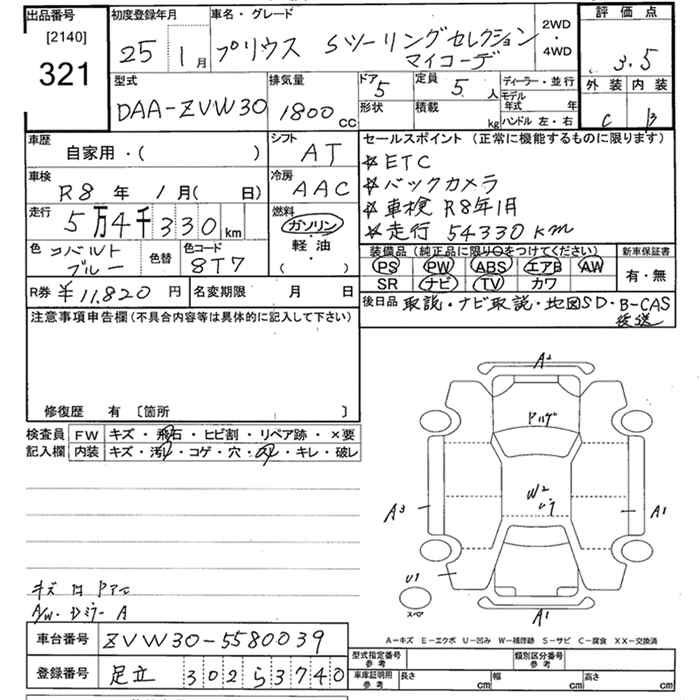 出品番号
[2140]
321
初度登録年月
25 1月
車名・グレード
プリウス Sツーリングセレクション
マイコーデ
2WD
・
4WD
評価点
3.5
外装 内装
C B
型式
DAA-ZVW30
排気量
1800 cc
ドア
5
形状
定員
5 人
積載
kg
ディーラー・並行
モデル
年式 年
ハンドル 左・右
車歴
自家用・( )
シフト
AT
車検
R8 年 1月( 日)
冷房
AAC
走行
5万4千330 km
燃料
ガソリン
軽油
( ・ )
色 コバルト
ブルー
色替
色コード
8T7
セールスポイント (正常に機能するものに限ります)
☆ETC
☆バックカメラ
☆車検 R8年1月
☆走行 54330km
装備品(純正品に限り○をつけてください)
PS PW ABS エアB AW
SR ナビ TV カワ
新車保証書
有・無
R券 ¥11,820 円
名変期限 月 日
後日品 取説・ナビ取説・地図SD・B-CAS
後送
注意事項申告欄(不具合内容等は具体的に記入して下さい)
修復歴 有 〔箇所 〕
検査員
記入欄
FW キズ・飛石・ヒビ割・リペア跡・×要
内装 キズ・汚れ・コゲ・穴・・キレ・破レ
A2
W2
A3
A1
U1
A1
スペア
A/W・ A
A-キズ E-エクボ U-凹み W-補修跡 S-サビ C-腐食 XX-交換済
車台番号 ZVW30-5580039
登録番号 足立 302 さ 3740
型式指定番号
参考
類別区分番号
参考
車庫証明用
参考
長さ cm 幅 cm 高さ cm